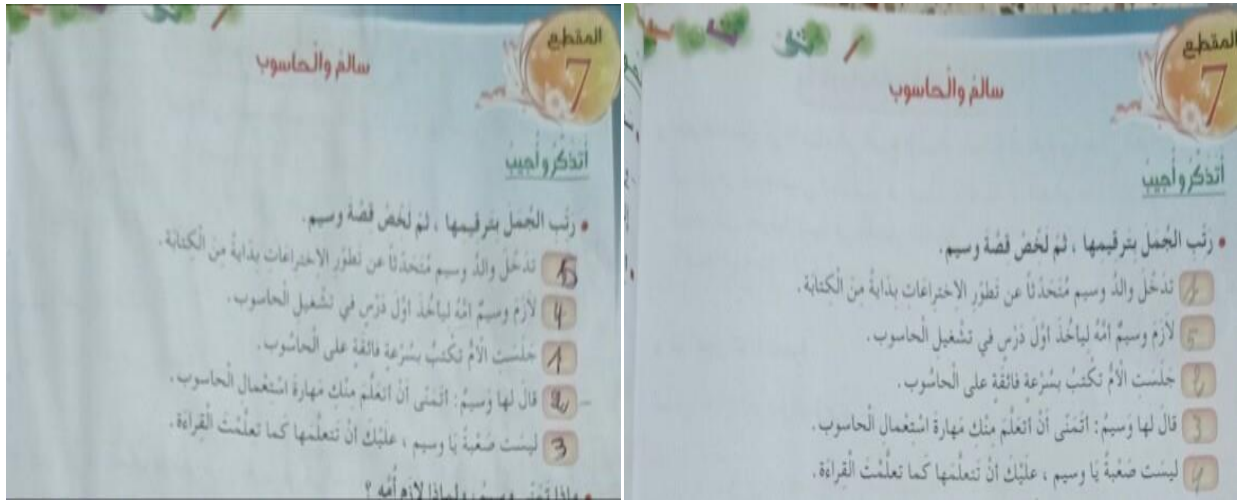 المقطع
7
سالم والحاسوب
أتذكر وأجيب
• رتب الجمل بترقيمها ، ثم لخص قصة وسيم .
5 تدخل والد وسيم متحدثا عن تطور الاختراعات بداية من الكتابة .
4 لازم وسيم أمه ليأخذ أول درس في تشغيل الحاسوب .
1 جلست الأم تكتب بسرعة فائقة على الحاسوب .
2 قال لها وسيم : أتمنى أن أتعلم منك مهارة استعمال الحاسوب .
3 ليست صعبة يا وسيم ، عليك أن تتعلمها كما تعلمت القراءة .
• ماذا تمنى وسيم ولماذا لازم أمه ؟
المقطع
7
سالم والحاسوب
أتذكر وأجيب
• رتب الجمل بترقيمها ، ثم لخص قصة وسيم .
1 تدخل والد وسيم متحدثا عن تطور الاختراعات بداية من الكتابة .
5 لازم وسيم أمه ليأخذ أول درس في تشغيل الحاسوب .
2 جلست الأم تكتب بسرعة فائقة على الحاسوب .
3 قال لها وسيم : أتمنى أن أتعلم منك مهارة استعمال الحاسوب .
4 ليست صعبة يا وسيم ، عليك أن تتعلمها كما تعلمت القراءة .